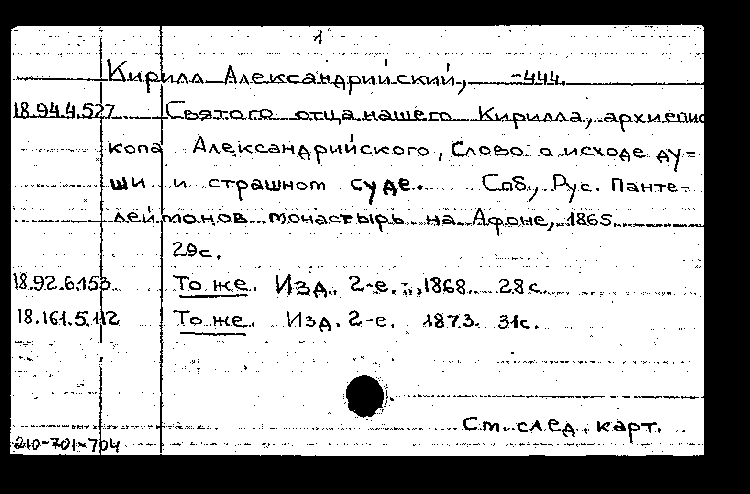 1
Кирилл Александрийский, -444.
18.94.4.527 Святого отца нашего Кирилла, архиепис
копа Александрийского, Слово о исходе ду-
ши и страшном суде. Спб., Рус. Панте-
леймонов монастырь на Афоне, 1865.
29с.
18.92.6.153 То же. Изд. 2-е. -, 1868. 28с.
18.161.5.112 То же. Изд. 2-е. 1873. 31с.
См. след. карт.
210-701-704